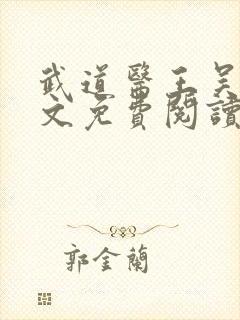 武道醫王吴
文免費閱讀
郭金蘭